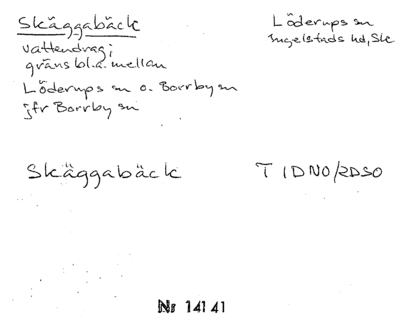 Skäggabäck
Löderups sn
Ingelstads hd, Sk
vattendrag;
gräns bl.a. mellan
Löderups sn o. Borrby sn
jfr Borrby sn
Skäggabäck T 1DNO/2DSO
Nr 14141